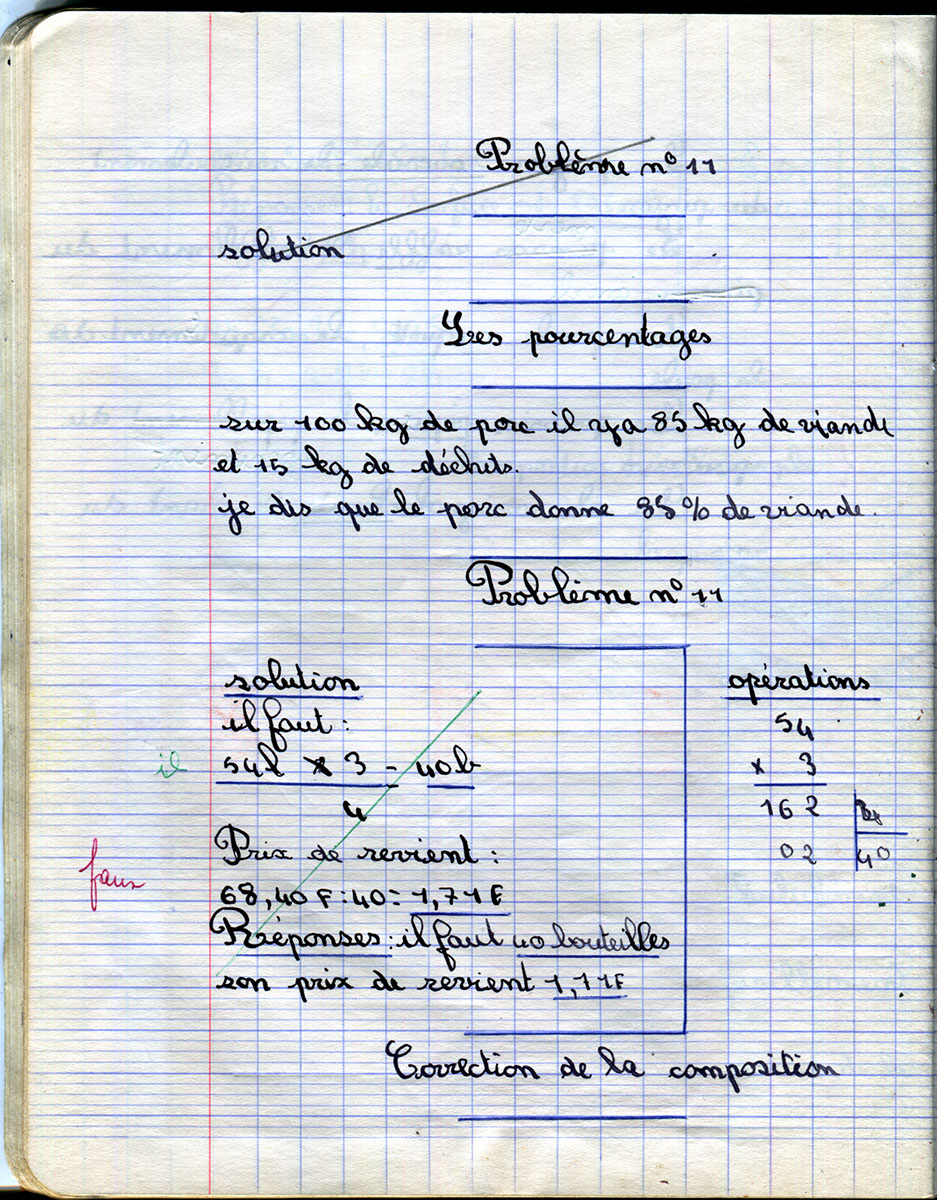 Problème n° 11
solution
Les pourcentages
sur 100 kg de porc il y a 85 kg de viande
et 15 kg de déchets.
je dis que le porc donne 85 % de viande.
Problème n° 11
solution
opérations
il faut :
54
il
54l x 3 = 40b
x 3
4
162
Prix de revient :
02 40
faux
68,40 F : 40 = 1,71 F
Réponses : il faut 40 bouteilles
son prix de revient 1,71F
Correction de la composition